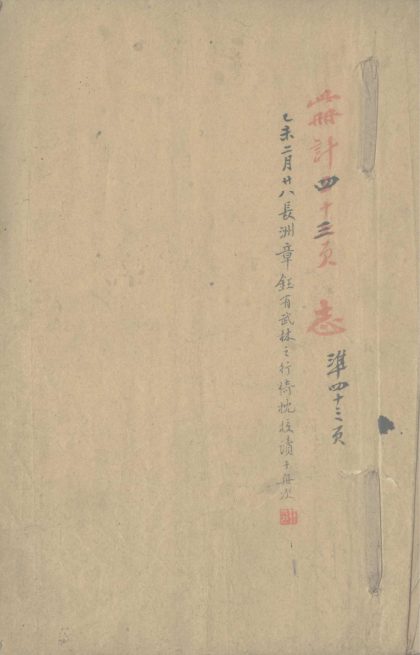 準四十三頁
此冊計四十三頁 志
己未二月廿八長洲章鈺有武林之行倚枕校讀十冊次